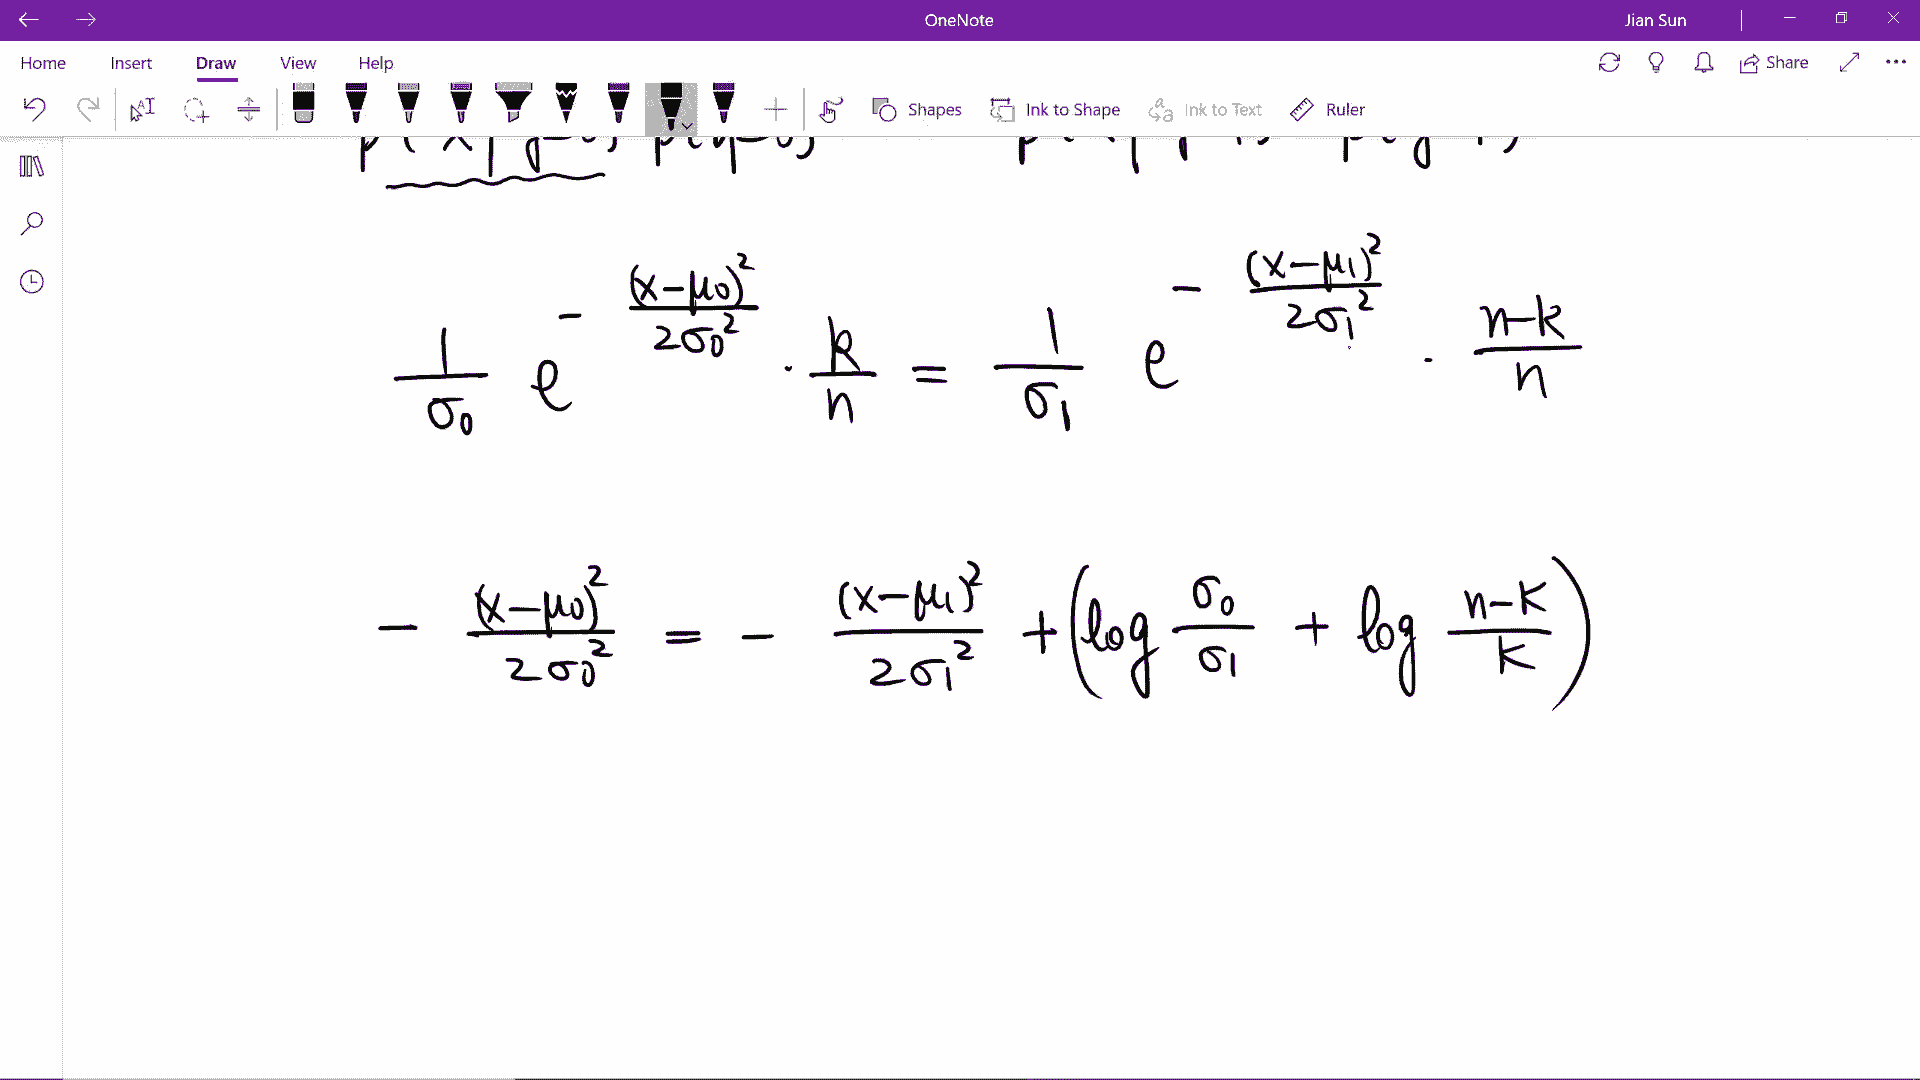 OneNote
Jian Sun
Home Insert Draw View Help
Share
Shapes Ink to Shape Ink to Text Ruler
p(x|y=0) p(y=0)
1/σ₀ e^(-(x-μ₀)²/2σ₀²) · k/n = 1/σ₁ e^(-(x-μ₁)²/2σ₁²) · n-k/n
- (x-μ₀)²/2σ₀² = - (x-μ₁)²/2σ₁² + (log σ₀/σ₁ + log n-k/k)